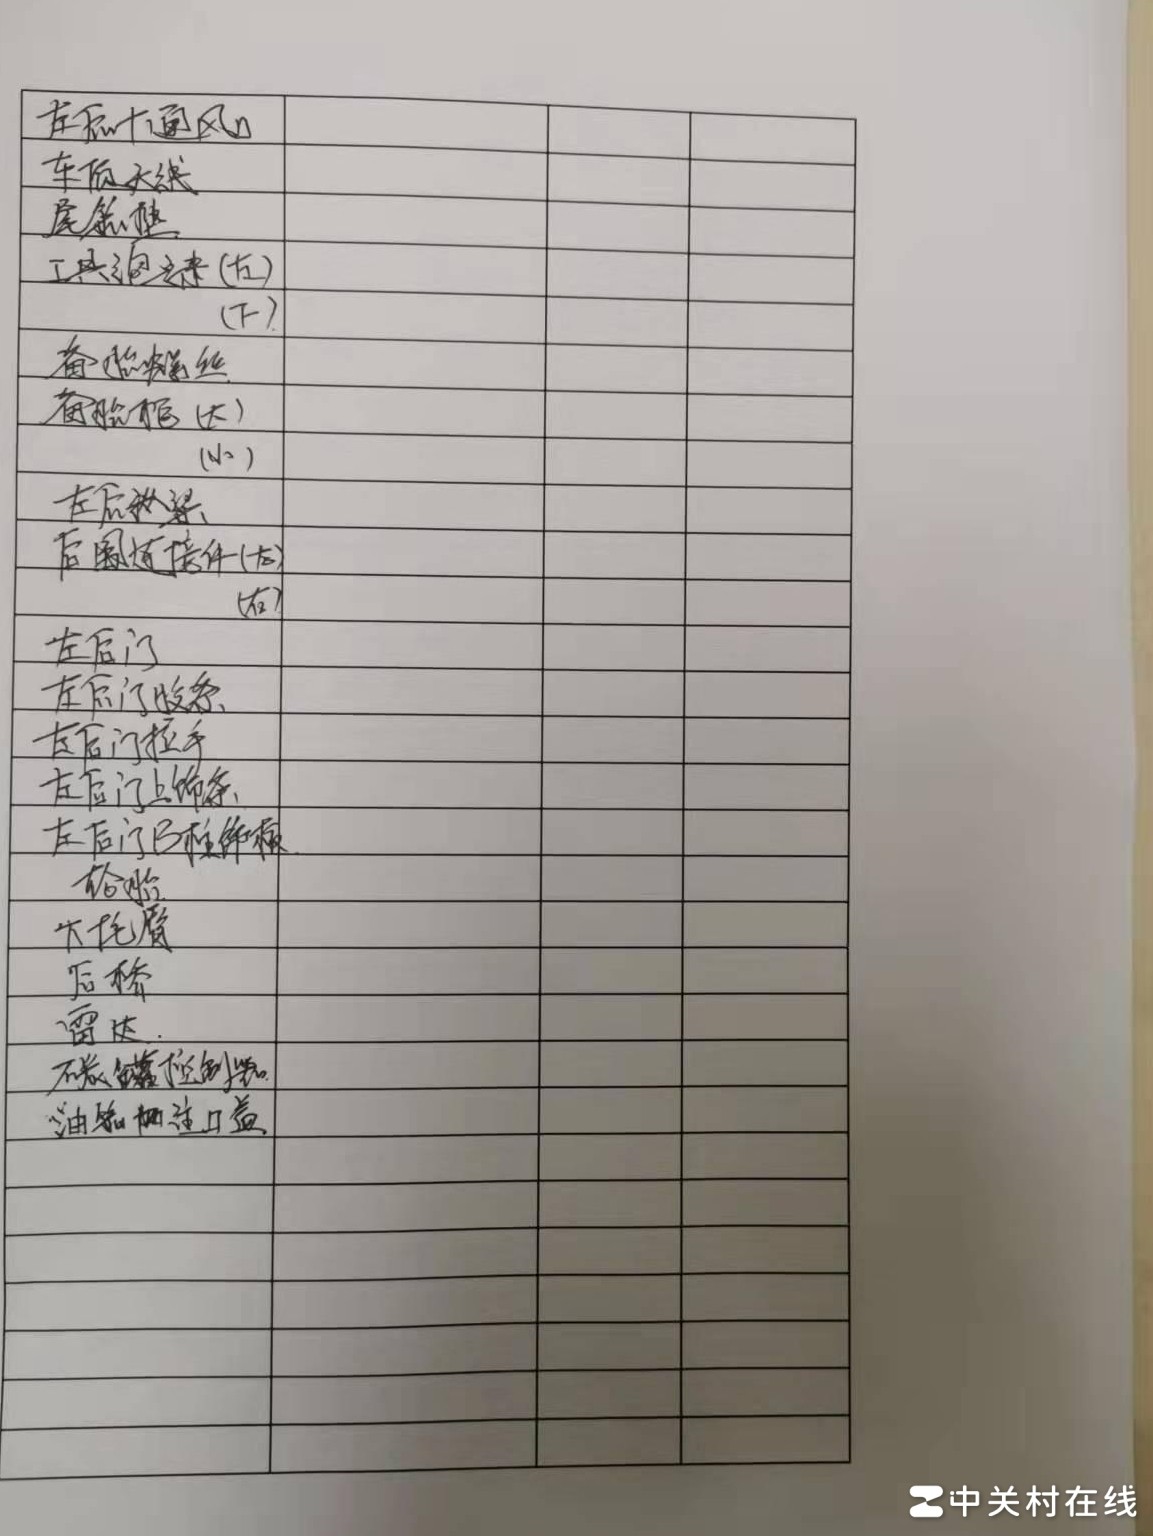 左后叶通风口
车顶天线
尾箱垫
工具泡沫(左)
(下)
备胎螺丝
备胎框(大)
(小)
左后纵梁
后围连接件(左)
(右)
左后门
左后门胶条
左后门拉手
左后门上饰条
左后门B柱饰板
轮胎
大托臂
后桥
雷达.
碳罐控制器
油箱加注口盖
中关村在线